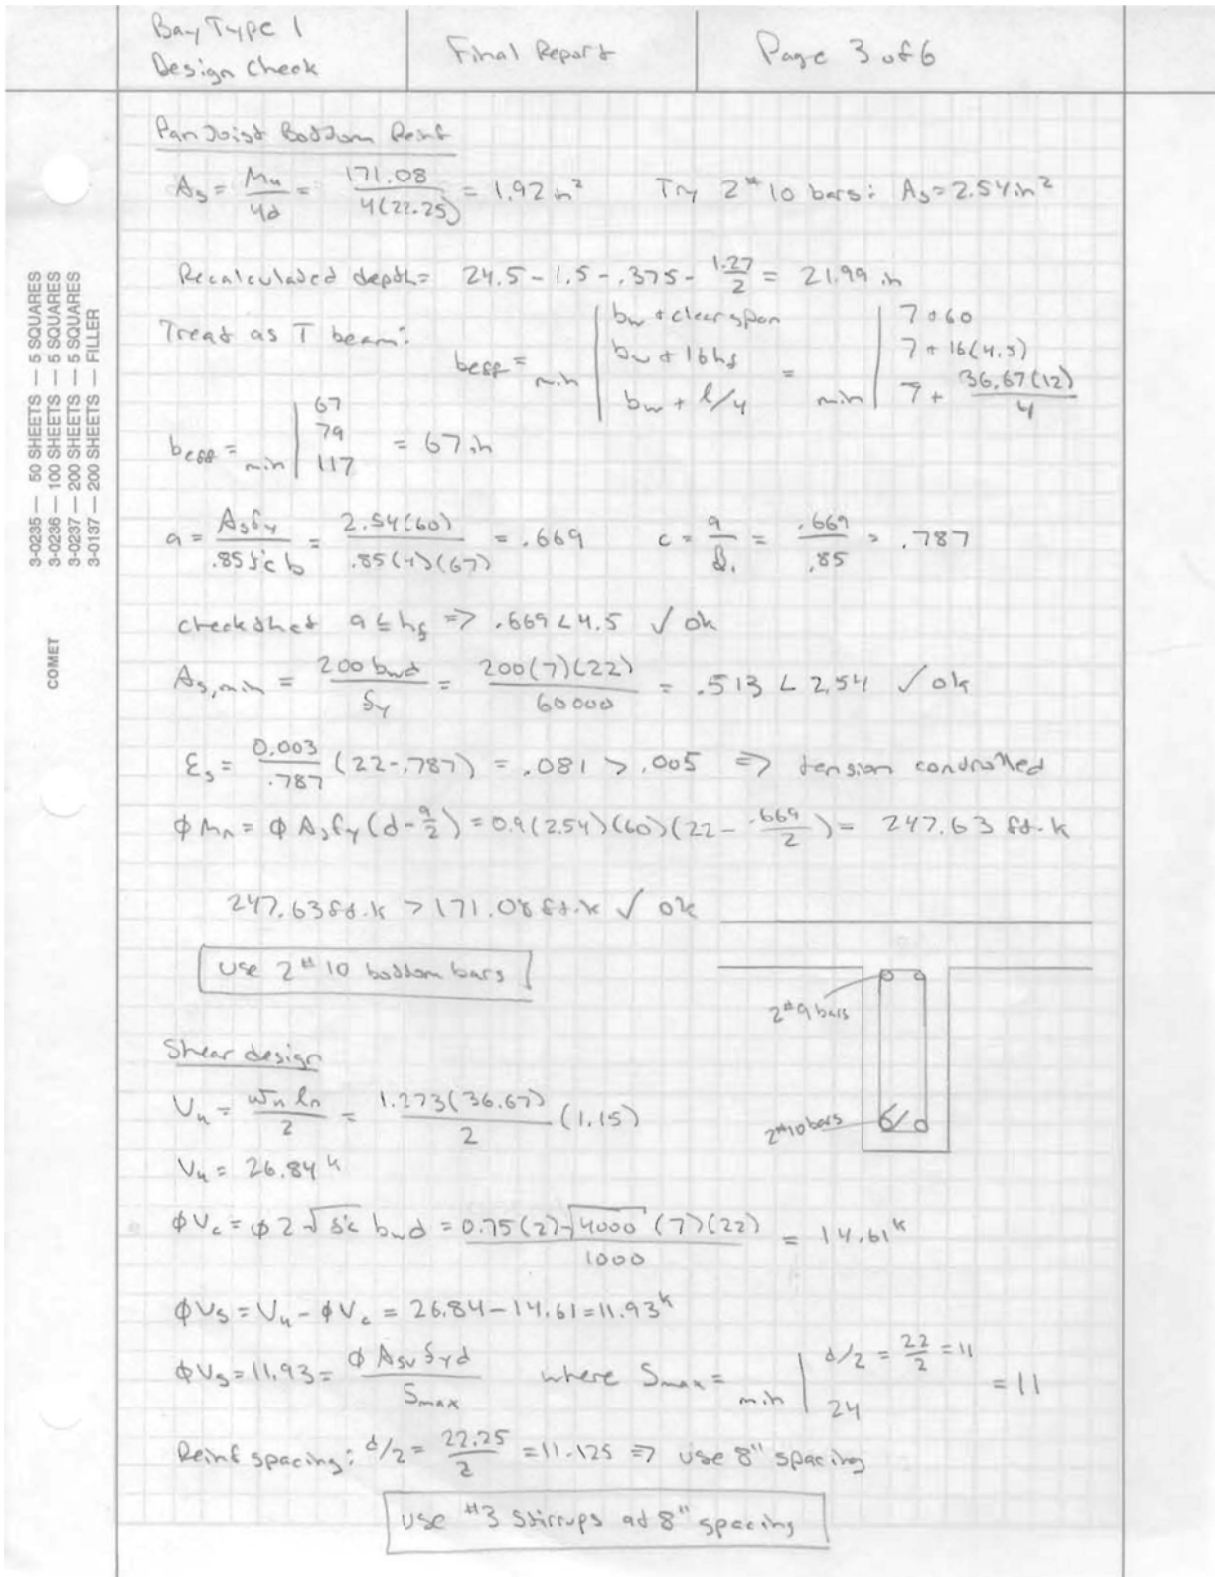 Bay Type 1
Design Check
Final Report
Page 3 of 6
3-0235 — 50 SHEETS — 5 SQUARES
3-0236 — 100 SHEETS — 5 SQUARES
3-0237 — 200 SHEETS — 5 SQUARES
3-0137 — 200 SHEETS — FILLER
COMET
Pan Joist Bottom Reinf
As = Mu/4d = 171.08/4(22.25) = 1.92 in² Try 2 #10 bars: As = 2.54 in²
Recalculated depth = 24.5 - 1.5 - .375 - 1.27/2 = 21.99 in
Treat as T beam:
beff = min | bw + clear span | bw + 16hf | bw + l/4 = min | 7+60 | 7 + 16(4.5) | 7 + 36.67(12)/4
beff = min | 67 | 79 | 117 = 67 in
a = Asfy/.85f'c b = 2.54(60)/.85(4)(67) = .669 c = a/β1 = .669/.85 = .787
check that a ≤ hf => .669 < 4.5 ✓ ok
As,min = 200 bwd/fy = 200(7)(22)/60000 = .513 < 2.54 ✓ ok
εs = 0.003/.787 (22-.787) = .081 > .005 => tension controlled
φMn = φAsfy(d-a/2) = 0.9(2.54)(60)(22 - .669/2) = 247.63 ft.k
247.63 ft.k > 171.08 ft.k ✓ ok
Use 2 #10 bottom bars
2 #9 bars
2 #10 bars
Shear design
Vu = wu ln/2 = 1.273(36.67)/2 (1.15)
Vu = 26.84 k
φVc = φ2√f'c bwd = 0.75(2)√4000 (7)(22)/1000 = 14.61 k
φVs = Vu - φVc = 26.84 - 14.61 = 11.93 k
φVs = 11.93 = φ Asv fyd/Smax where Smax = min | d/2 = 22/2 = 11 | 24 = 11
Reinf spacing: d/2 = 22.25/2 = 11.125 => use 8" spacing
use #3 stirrups at 8" spacing